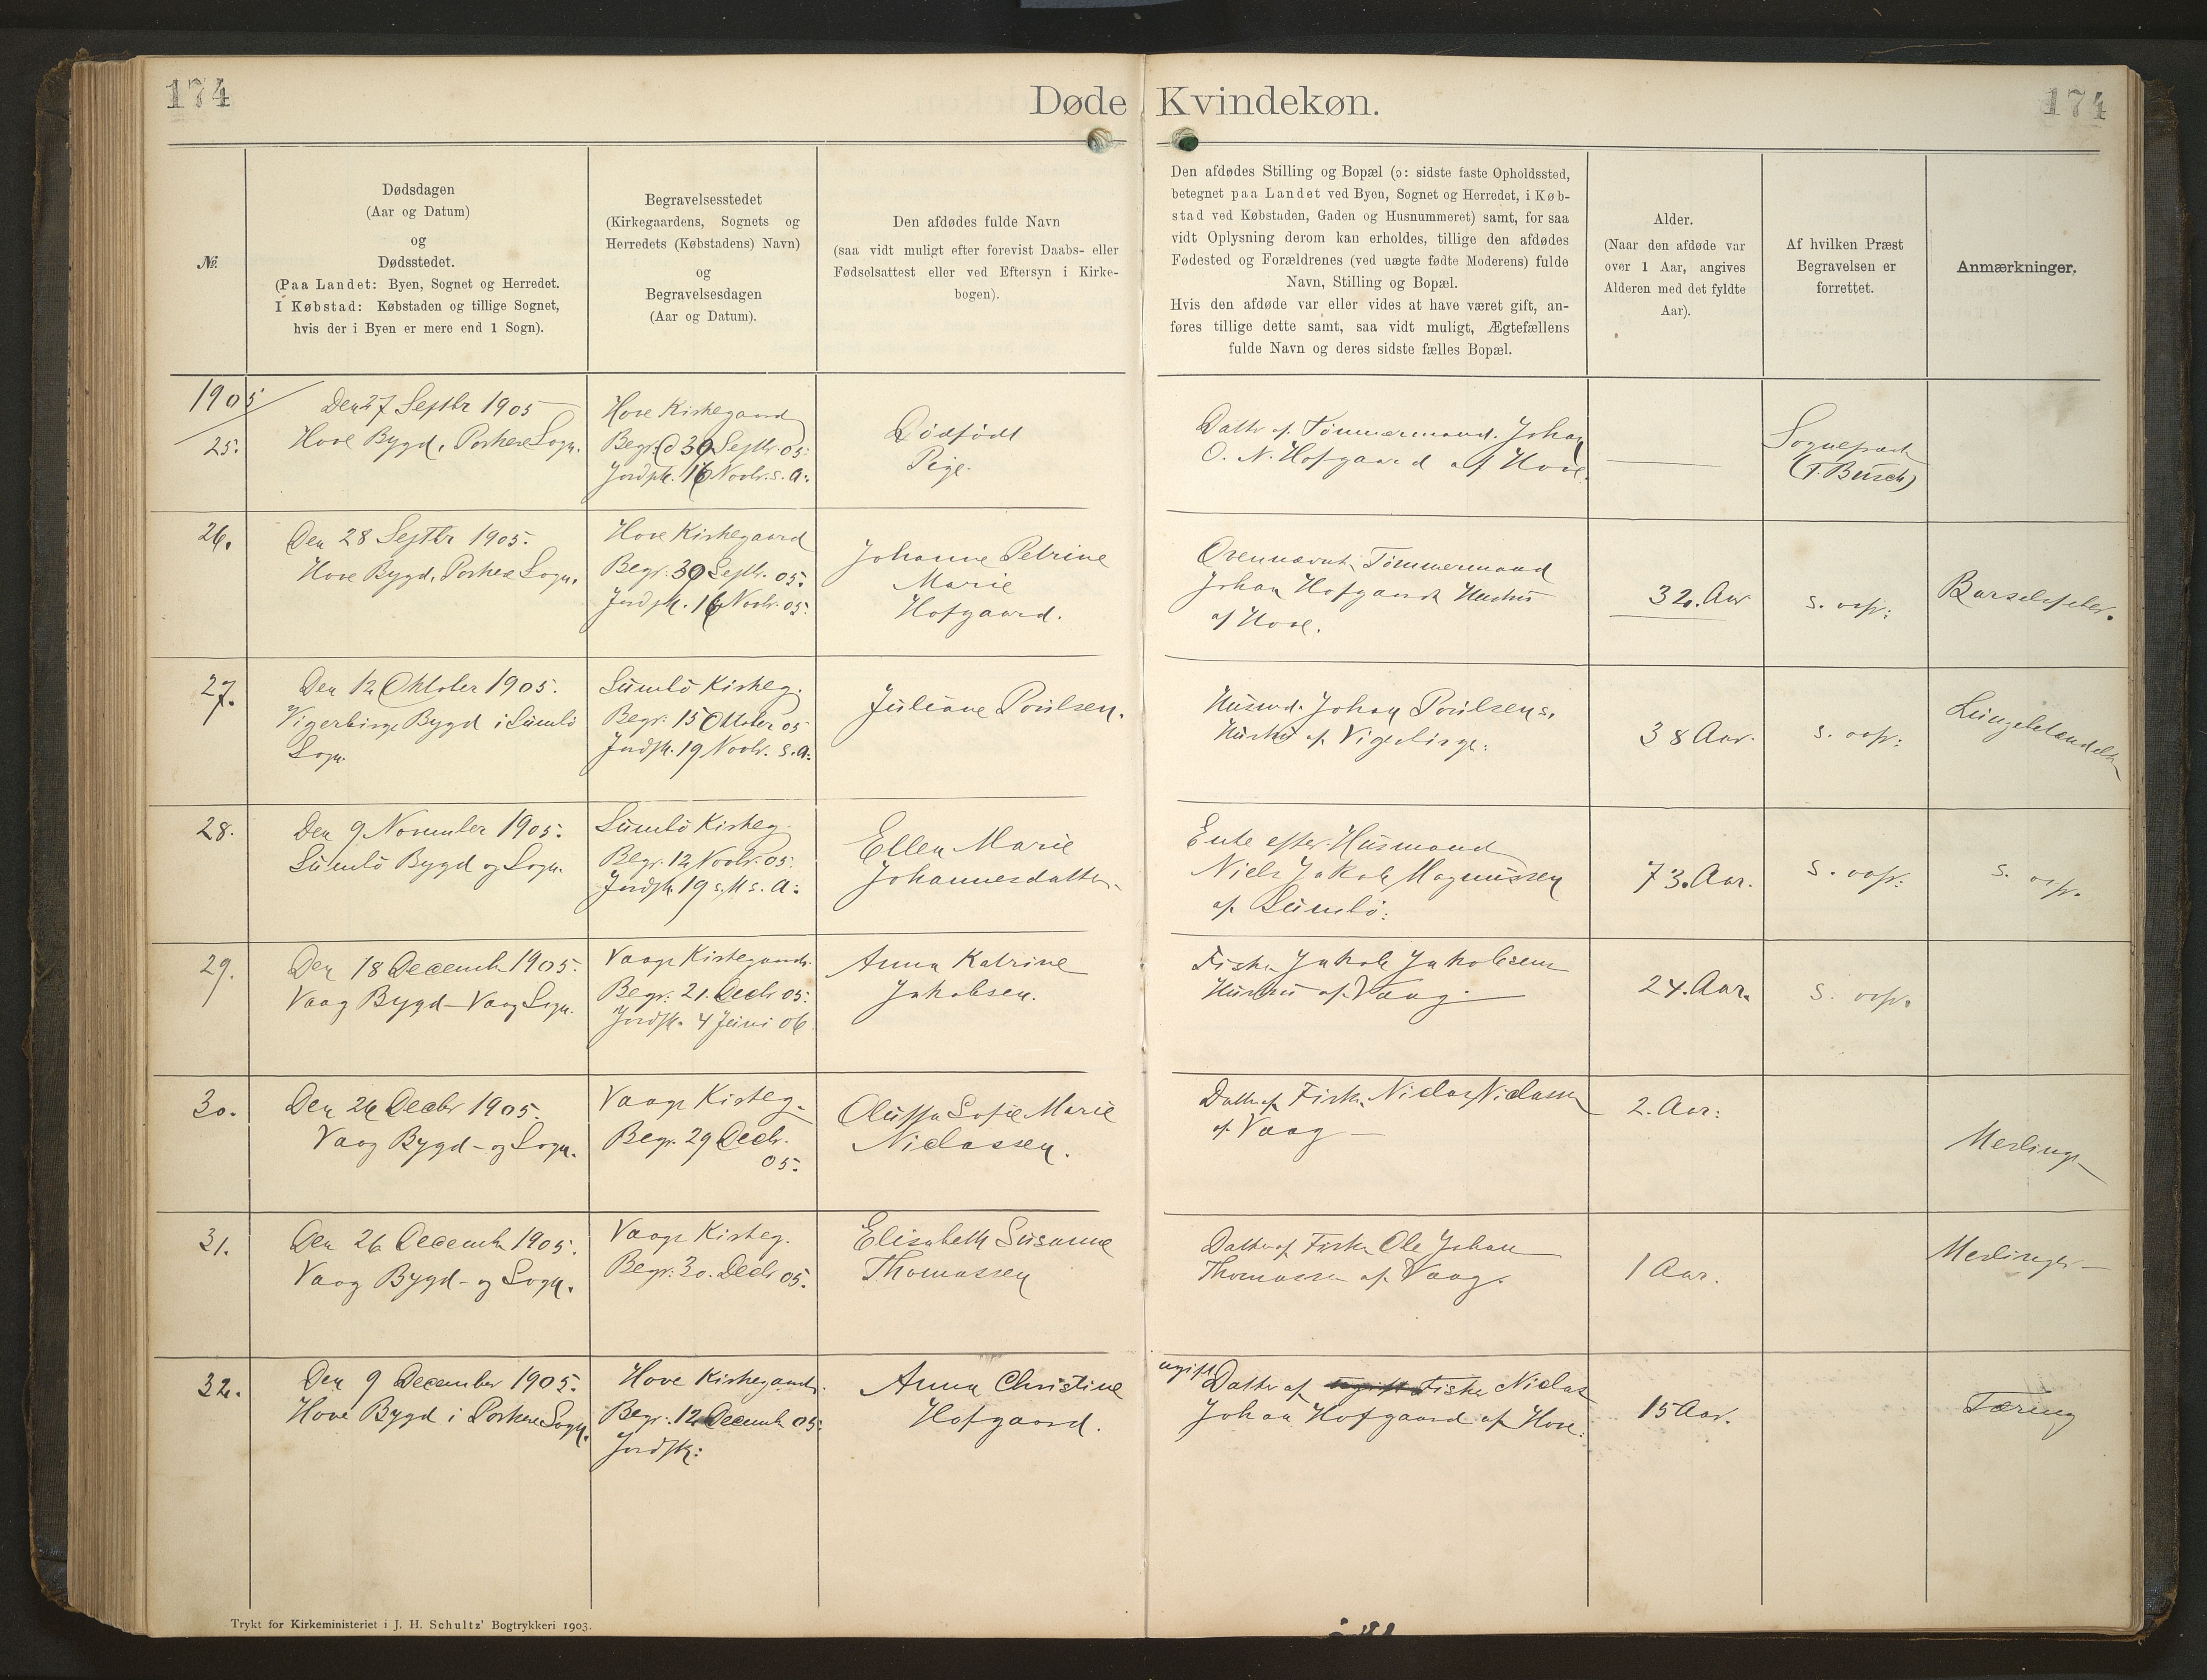 174
Døde Kvindekøn.
174
№.
Dødsdagen
(Aar og Datum)
og
Dødsstedet.
(Paa Landet: Byen, Sognet og Herredet.
I Købstad: Købstaden og tillige Sognet,
hvis der i Byen er mere end 1 Sogn).
Begravelsesstedet
(Kirkegaardens, Sognets og
Herredets (Købstadens) Navn)
og
Begravelsesdagen
(Aar og Datum).
Den afdødes fulde Navn
(saa vidt muligt efter forevist Daabs- eller
Fødselsattest eller ved Eftersyn i Kirke-
bogen).
Den afdødes Stilling og Bopæl (ɔ: sidste faste Opholdssted,
betegnet paa Landet ved Byen, Sognet og Herredet, i Køb-
stad ved Købstaden, Gaden og Husnummeret) samt, for saa
vidt Oplysning derom kan erholdes, tillige den afdødes
Fødested og Forældrenes (ved uægte fødte Moderens) fulde
Navn, Stilling og Bopæl.
Hvis den afdøde var eller vides at have været gift, an-
føres tillige dette samt, saa vidt muligt, Ægtefællens
fulde Navn og deres sidste fælles Bopæl.
Alder.
(Naar den afdøde var
over 1 Aar, angives
Alderen med det fyldte
Aar).
Af hvilken Præst
Begravelsen er
forrettet.
Anmærkninger.
1905
25.
Den 27 Septbr 1905
Hove Bygd, Porkere Sogn.
Hove Kirkegaard
Begr. d 30 Septbr. 05:
Jordpk. 16 Novbr. s. A:
Dödfödt
Pige.
Datter af Tömmermand. Johan
O. N. Hofgaard af Hove.
Sognepræst
(T. Busch)
26.
Den 28 Septbr 1905.
Hove Bygd, Porkere Sogn.
Hove Kirkegaard
Begr. 30 Septbr. 05.
Jordpk. 16 Novbr. 05:
Johanne Petrine
Marie
Hofgaard.
Ovennævnte Tömmermand
Johan Hofgaards Hustru
af Hove.
32. Aar
s. ovfr:
Barselsfeber.
27.
Den 12 Oktober 1905.
Vigerbirge Bygd i Sumbö
Sogn.
Sumbö Kirkeg.
Begr: 15 Oktober 05
Jordpk. 19 Novbr. s. A:
Juliane Poulsen.
Husmd. Johan Poulsens.
Hustru af Vigerbirge:
38 Aar.
s. ovfr:
Lungebetændelse
28.
Den 9 November 1905.
Sumbö Bygd og Sogn.
Sumbö Kirkeg.
Begr. 12 Novbr. 05:
Jordpk 19 s. M s. A:
Ellen Marie
Johannesdatter.
Enke efter Husmand
Niels Jakob Magnussen
af Sumbö:
73. Aar.
s. ovfr:
s. ovfr.
29.
Den 18 Decemb 1905.
Vaag Bygd - Vaag Sogn.
Vaags Kirkegaard.
Begr: 21. Decbr 05:
Jordpk. 4 Juni 06
Anna Katrine
Jakobsen.
Fisker Jakob Jakobsens
Hustru af Vaag.
24. Aar.
s. ovfr.
30.
Den 26 Decbr 1905.
Vaag Bygd - og Sogn.
Vaags Kirkeg.
Begr. 29 Decbr.
05:
Sofie Marie
Niclassen.
Datter af Fisker Niclas Niclassen
af Vaag
2. Aar:
Meslinger
31.
Den 26 Decemb 1905.
Vaag Bygd - og Sogn.
Vaags Kirkeg.
Begr: 30. Decbr 05.
Elisabeth Susanne
Thomassen
Datter af Fisker Ole Johan
Thomassen af Vaag.
1 Aar.
Meslinger
32.
Den 9 December 1905.
Hove Bygd i Porkere Sogn.
Hove Kirkegaard.
Begr: 12 Decemb 05:
Jordpk:
Anna Christine
Hofgaard.
ugift
Datter af Fisker Niclas
Johan Hofgaard af Hove:
15 Aar.
Tæring
Trykt for Kirkeministeriet i J. H. Schultz' Bogtrykkeri 1903.